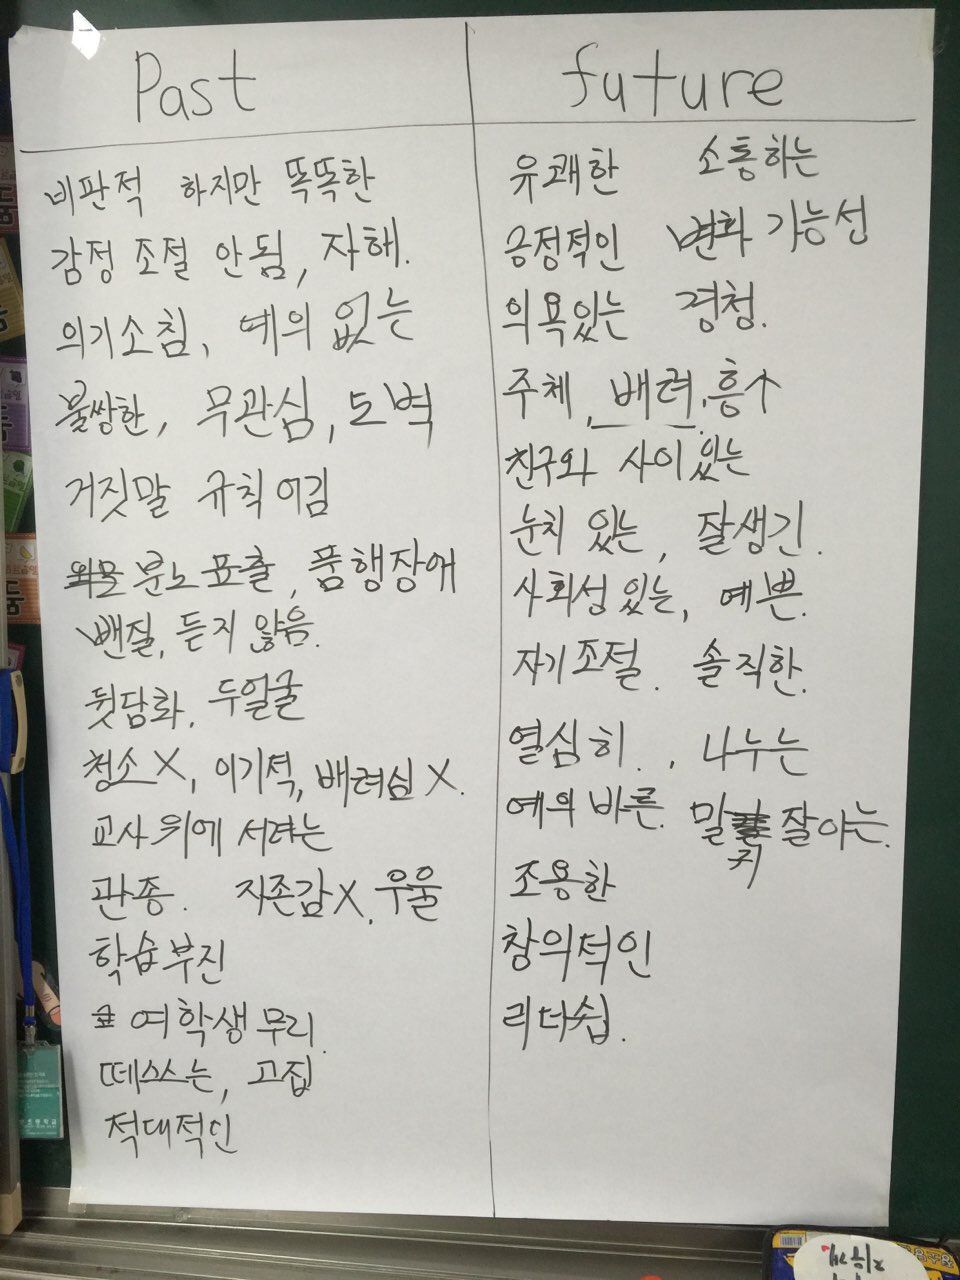 Past
비판적 하지만 똑똑한
감정 조절 안됨, 자해.
의기소침, 예의 없는
불쌍한, 무관심, 도벽
거짓말 규칙 어김
분노 표출, 품행장애
뺀질, 듣지 않음.
뒷담화, 두얼굴
청소 X, 이기적, 배려심 X.
교사 위에 서려는
관종. 자존감 X, 우울
학습부진
여학생 무리.
떼쓰는, 고집
적대적인
future
유쾌한 소통하는
긍정적인 변화 가능성
의욕있는 경청.
주체, 배려, 흥↑
친구와 사이 있는
눈치 있는, 잘생긴.
사회성 있는, 예쁜.
자기조절. 솔직한.
열심히. , 나누는
예의 바른. 말귀 잘 아는.
조용한
창의적인
리더쉽.